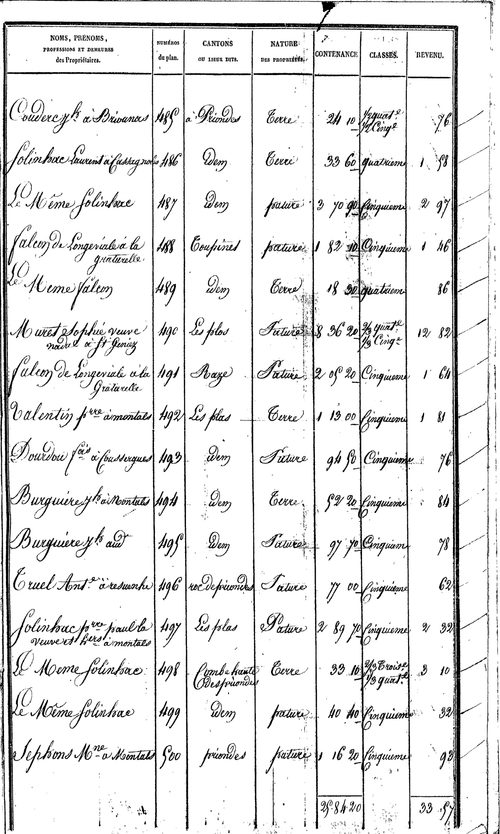 NOMS, PRÉNOMS, PROFESSIONS ET DEMEURES des Propriétaires. NUMÉROS du plan. CANTONS OU LIEUX DITS. NATURE DES PROPRIÉTÉS. CONTENANCE CLASSES. REVENU.
Couderc jh à 485 à Priondes Terre 24 10 1/2 quate 1/2 Cinqe 76
Solinhac Laurent à Cussergnols 486 idem Terre 33 60 quatrieme 1 58
Le Même Solinhac 487 idem pature 3 70 90 Cinquieme 2 97
falcon de Longeviale à la Gratarelle 488 Toupines pature 1 82 10 Cinquieme 1 46
Le Meme falcon 489 idem Terre 18 30 quatrieme 86
Muret Sophie veuve à St Geniez 490 Les plos Pature 8 36 20 2/3 quate 1/3 Cinqe 12 82
falcon de Longeviale à la Gratarelle 491 Raze Pature 2 05 20 Cinquieme 1 64
Valentin pre à montals 492 Les plas Terre 1 13 00 Cinquieme 1 81
Dourdou fois à Coussergues 493 idem Pature 94 50 Cinquieme 76
Burguiere jh à Montals 494 idem Terre 52 20 Cinquieme 84
Burguiere jh aud 495 idem Pature 97 70 Cinquiem 78
Truel Ante à 496 roc de priondes Pature 77 00 Cinquieme 62
Solinhac pre paul la veuve et hers à montals 497 Les plas Pature 2 89 70 Cinquieme 2 32
Le Meme Solinhac 498 Combe haute des priondes Terre 33 10 2/3 Troise 1/3 quate 3 10
Le Même Solinhac 499 idem pature 40 40 Cinquieme 32
Sephons Mne à Montals 500 priondes pature 1 16 20 Cinquieme 93
25 84 20 33 57